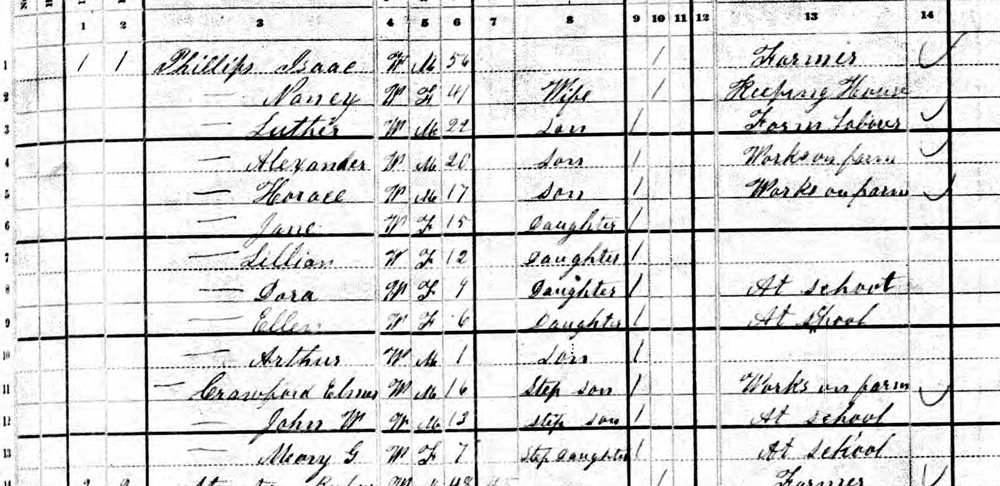 1 2 3 4 5 6 7 8 9 10 11 12 13 14
1 1 1 Phillips Isaac W M 56 1 Farmer
2 — Nancy W F 41 Wife 1 Keeping House
3 — Luther W M 22 Son 1 Farm Labour
4 — Alexander W M 20 Son 1 Works on farm
5 — Horace W M 17 Son 1 Works on farm
6 — Jane W F 15 Daughter 1
7 — Lillian W F 12 Daughter 1
8 — Dora W F 9 Daughter 1 At school
9 — Ellen W F 6 Daughter 1 At school
10 — Arthur W M 1 Son 1
11 — Crawford Elmer W M 16 Step son 1 Works on farm
12 — John W W M 13 Step son 1 At school
13 — Mary G W F 7 Step Daughter 1 At school
2 2 W 48 1 Farmer